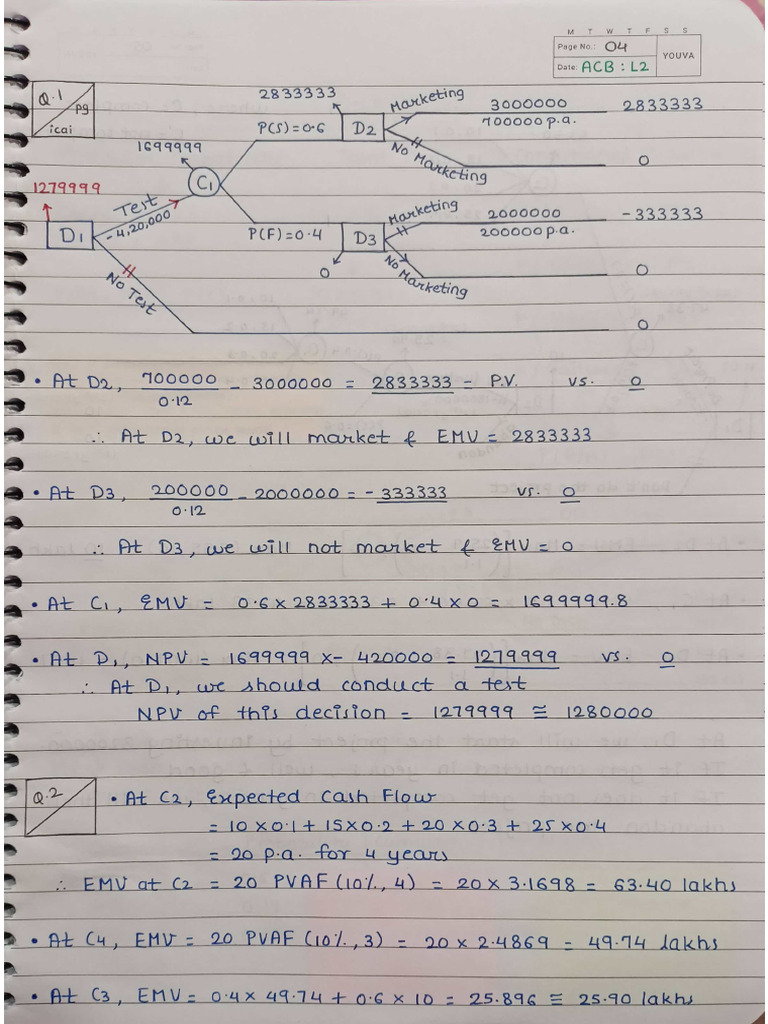 M T W T F S S
Page No.: 04
YOUVA
Date: ACB : L2
Q.1
pg
icai
2833333
Marketing
3000000
2833333
P(S) = 0.6
D2
700000 p.a.
1699999
No Marketing
0
C1
1279999
Test
-4,20,000
D1
P(F) = 0.4
D3
Marketing
2000000
-333333
200000 p.a.
0
No Marketing
0
No Test
0
• At D2, 700000/0.12 - 3000000 = 2833333 - P.V. vs. 0
∴ At D2, we will market & EMV = 2833333
• At D3, 200000/0.12 - 2000000 = -333333 vs. 0
∴ At D3, we will not market & EMV = 0
• At C1, EMV = 0.6 x 2833333 + 0.4 x 0 = 1699999.8
• At D1, NPV = 1699999 x - 420000 = 1279999 vs. 0
∴ At D1, we should conduct a test
NPV of this decision = 1279999 ≅ 1280000
Q.2
• At C2, Expected Cash Flow
= 10 x 0.1 + 15 x 0.2 + 20 x 0.3 + 25 x 0.4
= 20 p.a. for 4 years
∴ EMV at C2 = 20 PVAF (10%, 4) = 20 x 3.1698 = 63.40 lakhs
• At C4, EMV = 20 PVAF (10%, 3) = 20 x 2.4869 = 49.74 lakhs
• At C3, EMV = 0.4 x 49.74 + 0.6 x 10 = 25.896 ≅ 25.90 lakhs